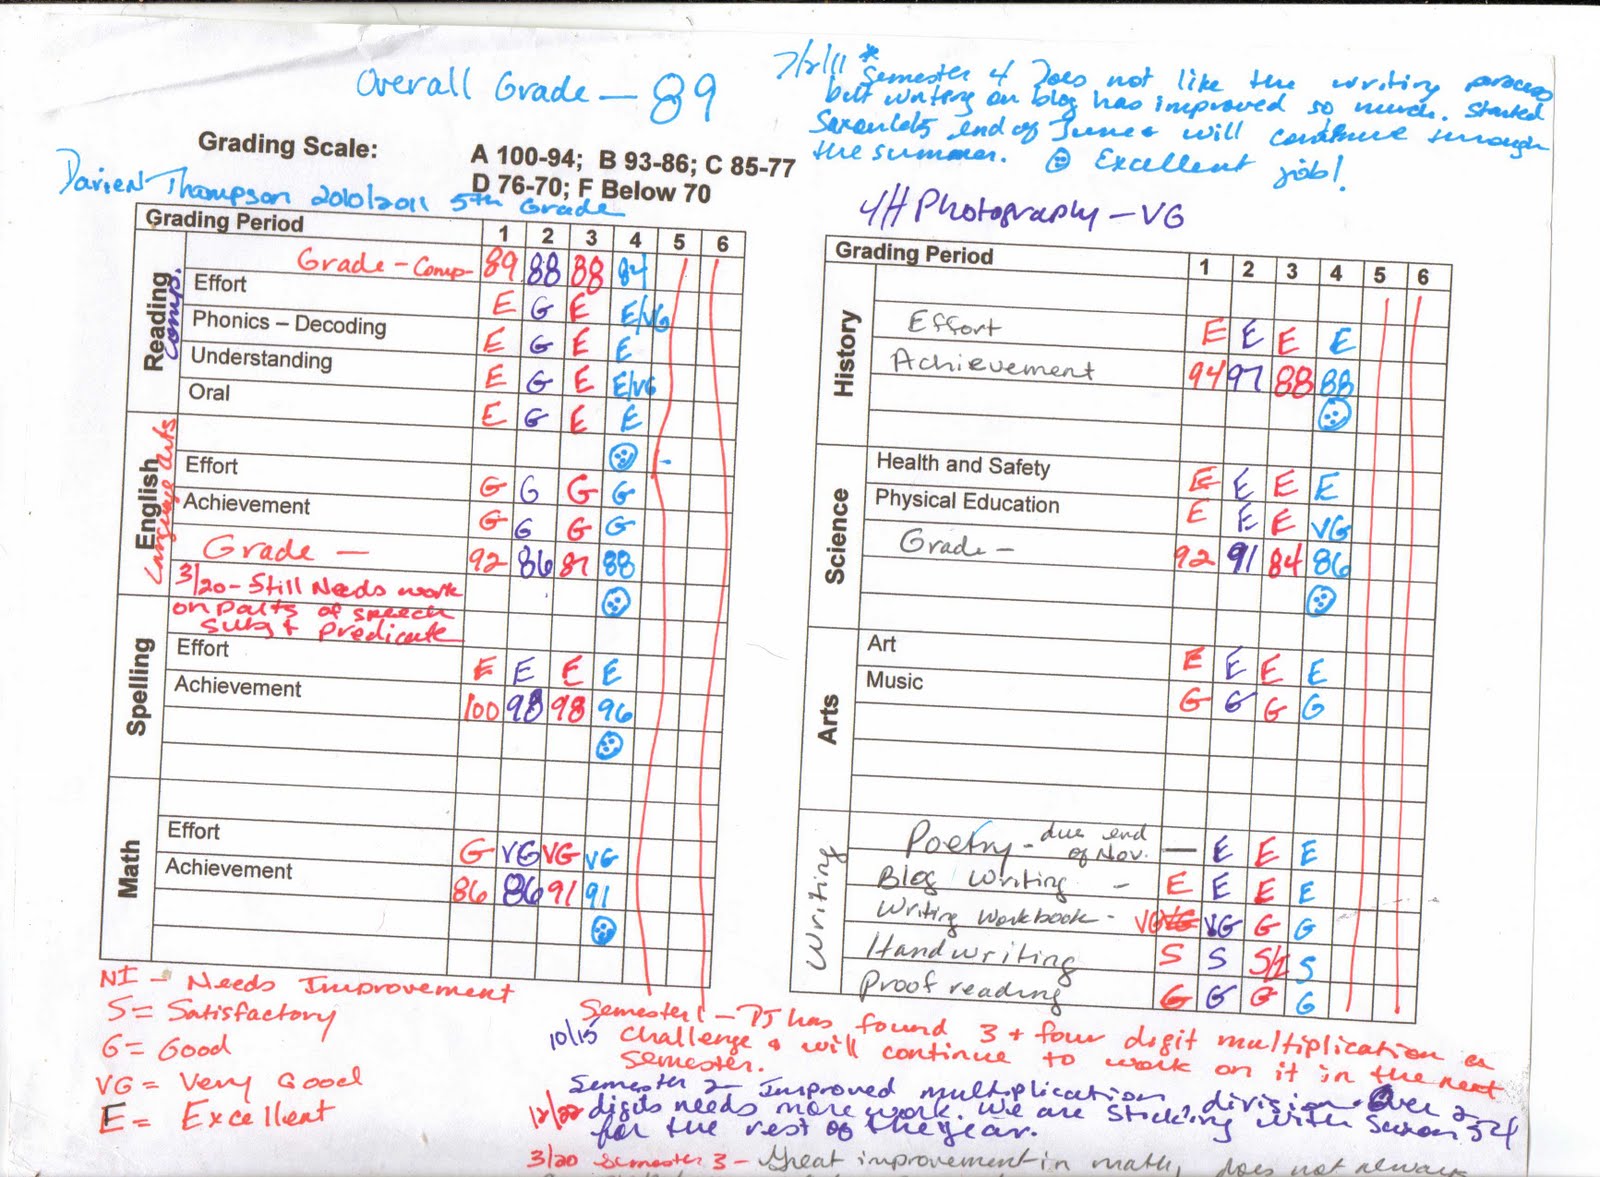 Overall Grade – 89
7/2/11 * Semester 4 Does not like the writing process
but writing on blog has improved so much. Started
Saxon 65 end of June & will continue through
the summer. Excellent job!
Grading Scale:
A 100-94; B 93-86; C 85-77
D 76-70; F Below 70
Darien Thompson 2010/2011 5th Grade
4H Photography – VG
Grading Period 1 2 3 4 5 6
Reading
Comp.
Grade – Comp- 89 88 88 84
Effort E G E E/VG
Phonics – Decoding E G E E
Understanding E G E E/VG
Oral E G E E
English
Language Arts
Effort G G G G
Achievement G G G G
Grade – 92 86 87 88
3/20 - Still Needs work
on parts of speech
subj & predicate
Spelling
Effort E E E E
Achievement 100 98 98 96
Math
Effort G VG VG VG
Achievement 86 86 91 91
Grading Period 1 2 3 4 5 6
History
Effort E E E E
Achievement 94 97 88 88
Science
Health and Safety E E E E
Physical Education E E E VG
Grade – 92 91 84 86
Arts
Art E E E E
Music G G G G
Writing
Poetry – due end of Nov. — E E E
Blog Writing – E E E E
Writing Workbook - VG VG G G
Handwriting S S S
Proof reading G G G G
NI – Needs Improvement
S = Satisfactory
G = Good
VG = Very Good
E = Excellent
Semester 1 – DJ has found 3 & four digit multiplication a
10/15 challenge & will continue to work on it in the next
semester.
Semester 2 – Improved multiplication, division over 2
12/22 digits needs more work. We are sticking with Saxon 54
for the rest of the year.
3/20 Semester 3 – Great improvement in math, does not always